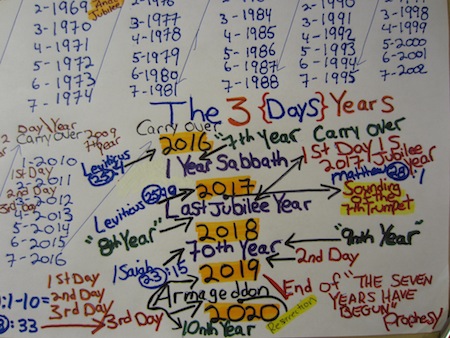 2-1969
3-1970
4-1971
5-1972
6-1973
7-1974
And Jubilee
3-1977
4-1978
5-1979
6-1980
7-1981
2-1984
3-1984
4-1985
5-1986
6-1987
7-1988
3-1991
4-1992
5-1993
6-1994
7-1995
2-1998
3-1998
4-1999
5-2000
6-2001
7-2002
The 3 {Days} Years
Day/Year
Carry Over
2009
7th Year
1-2010
1st Day
2-2011
2nd Day
3-2012
3rd Day
4-2013
5-2014
6-2015
7-2016
Carry Over
2016
"7th Year
Carry Over
Leviticus
25:4
1 Year Sabbath
1st Day 1 5
2017 Jubilee
year
Matthew 28:1
2017
Sounding
of the
7th Trumpet
Leviticus
Last Jubilee Year
"8th Year"
2018
"9nth Year"
70th Year
Isaiah 23:15
2019
2nd Day
Armageddon
2020
10nth Year
End of
Resurrection
"THE SEVEN
YEARS HAVE
BEGUN"
Prophesy
1st Day
:1-10=
2nd Day
3rd Day
:33
3rd Day